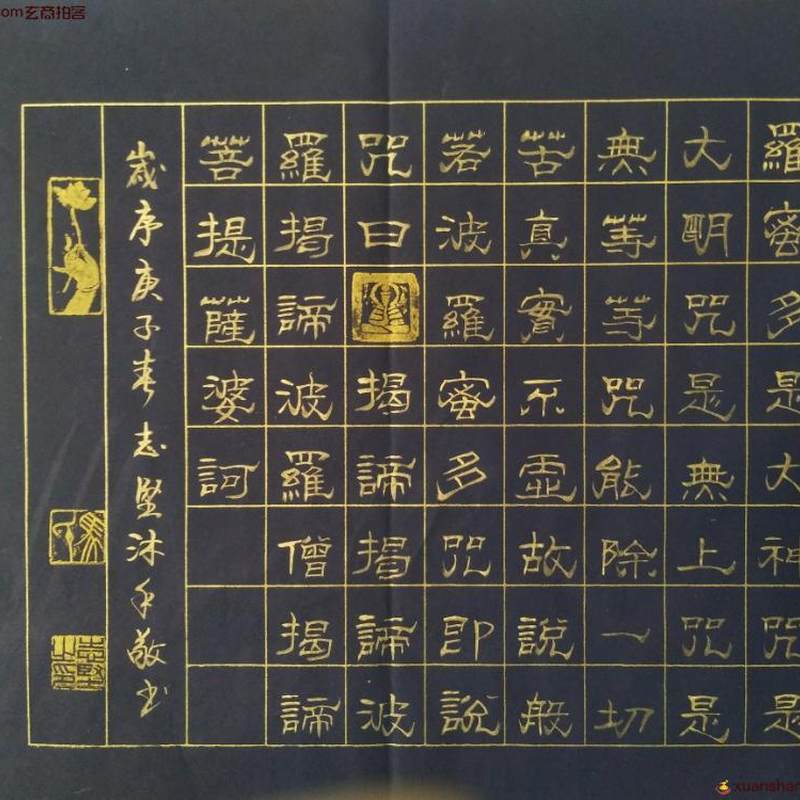 om玄商拍客
羅蜜多是大神咒是
大明咒是無上咒是
無等等咒能除一切
苦真實不虛故說般
若波羅蜜多咒即說
咒曰揭諦揭諦波
羅揭諦波羅僧揭諦
菩提薩婆訶
歲序庚子春志堅沐手敬書
xuanshan